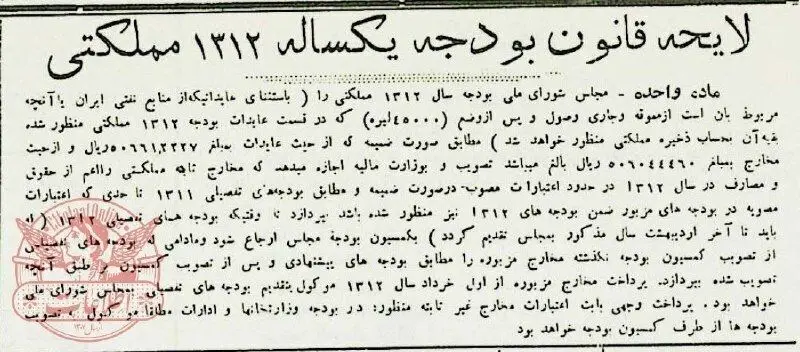 لایحه قانون بودجه یکساله ۱۳۱۲ مملکتی
ماده واحده - مجلس شورای ملی بودجه سال ۱۳۱۲ مملکتی را ( باستثنای عایداتیکه از منابع نفتی ایران یا آنچه
مربوط بان است از معوقه وجاری وصول و پس از وضع (۴۵۰۰۰ لیره) که در قسمت عایدات بودجه ۱۳۱۲ مملکتی منظور شده
بقیه آن بحساب ذخیره مملکتی منظور خواهد شد ) مطابق صورت ضمیمه که از حیث عایدات بمبلغ ۵۰۶۶۱۲۲۲۷ ریال و از حیث
مخارج بمبلغ ۵۰۶۰۴۴۴۶۰ ریال بالغ میباشد تصویب و بوزارت مالیه اجازه میدهد که مخارج ثابته مملکتی را اعم از حقوق
و مصارف در سال ۱۳۱۲ در حدود اعتبارات مصوب درصورت ضمیمه و مطابق بودجه‌های تفصیلی ۱۳۱۱ تا حدی که اعتبارات
مصوبه در بودجه های مزبور ضمن بودجه های ۱۳۱۲ نیز منظور شده باشد بپردازد تا وقتیکه بودجه های تفصیلی ۱۳۱۲ ( که
باید تا آخر اردیبهشت سال مذکور بمجلس تقدیم گردد ) بکمسیون بودجه مجلس ارجاع شود ومادامی که بودجه های تفصیلی
از تصویب کمسیون بودجه نگذشته مخارج مزبوره را مطابق بودجه های پیشنهادی و پس از تصویب کمسیون بر طبق آنچه
تصویب شده بپردازد. پرداخت مخارج مزبوره از اول خرداد سال ۱۳۱۲ موکول بتقدیم بودجه های تفصیلی بمجلس شورای ملی
خواهد بود . پرداخت وجهی بابت اعتبارات مخارج غیر ثابته منظور: در بودجه وزارتخانها و ادارات مطلقا موکول بتصویب
بودجه ها از طرف کمسیون بودجه خواهد بود